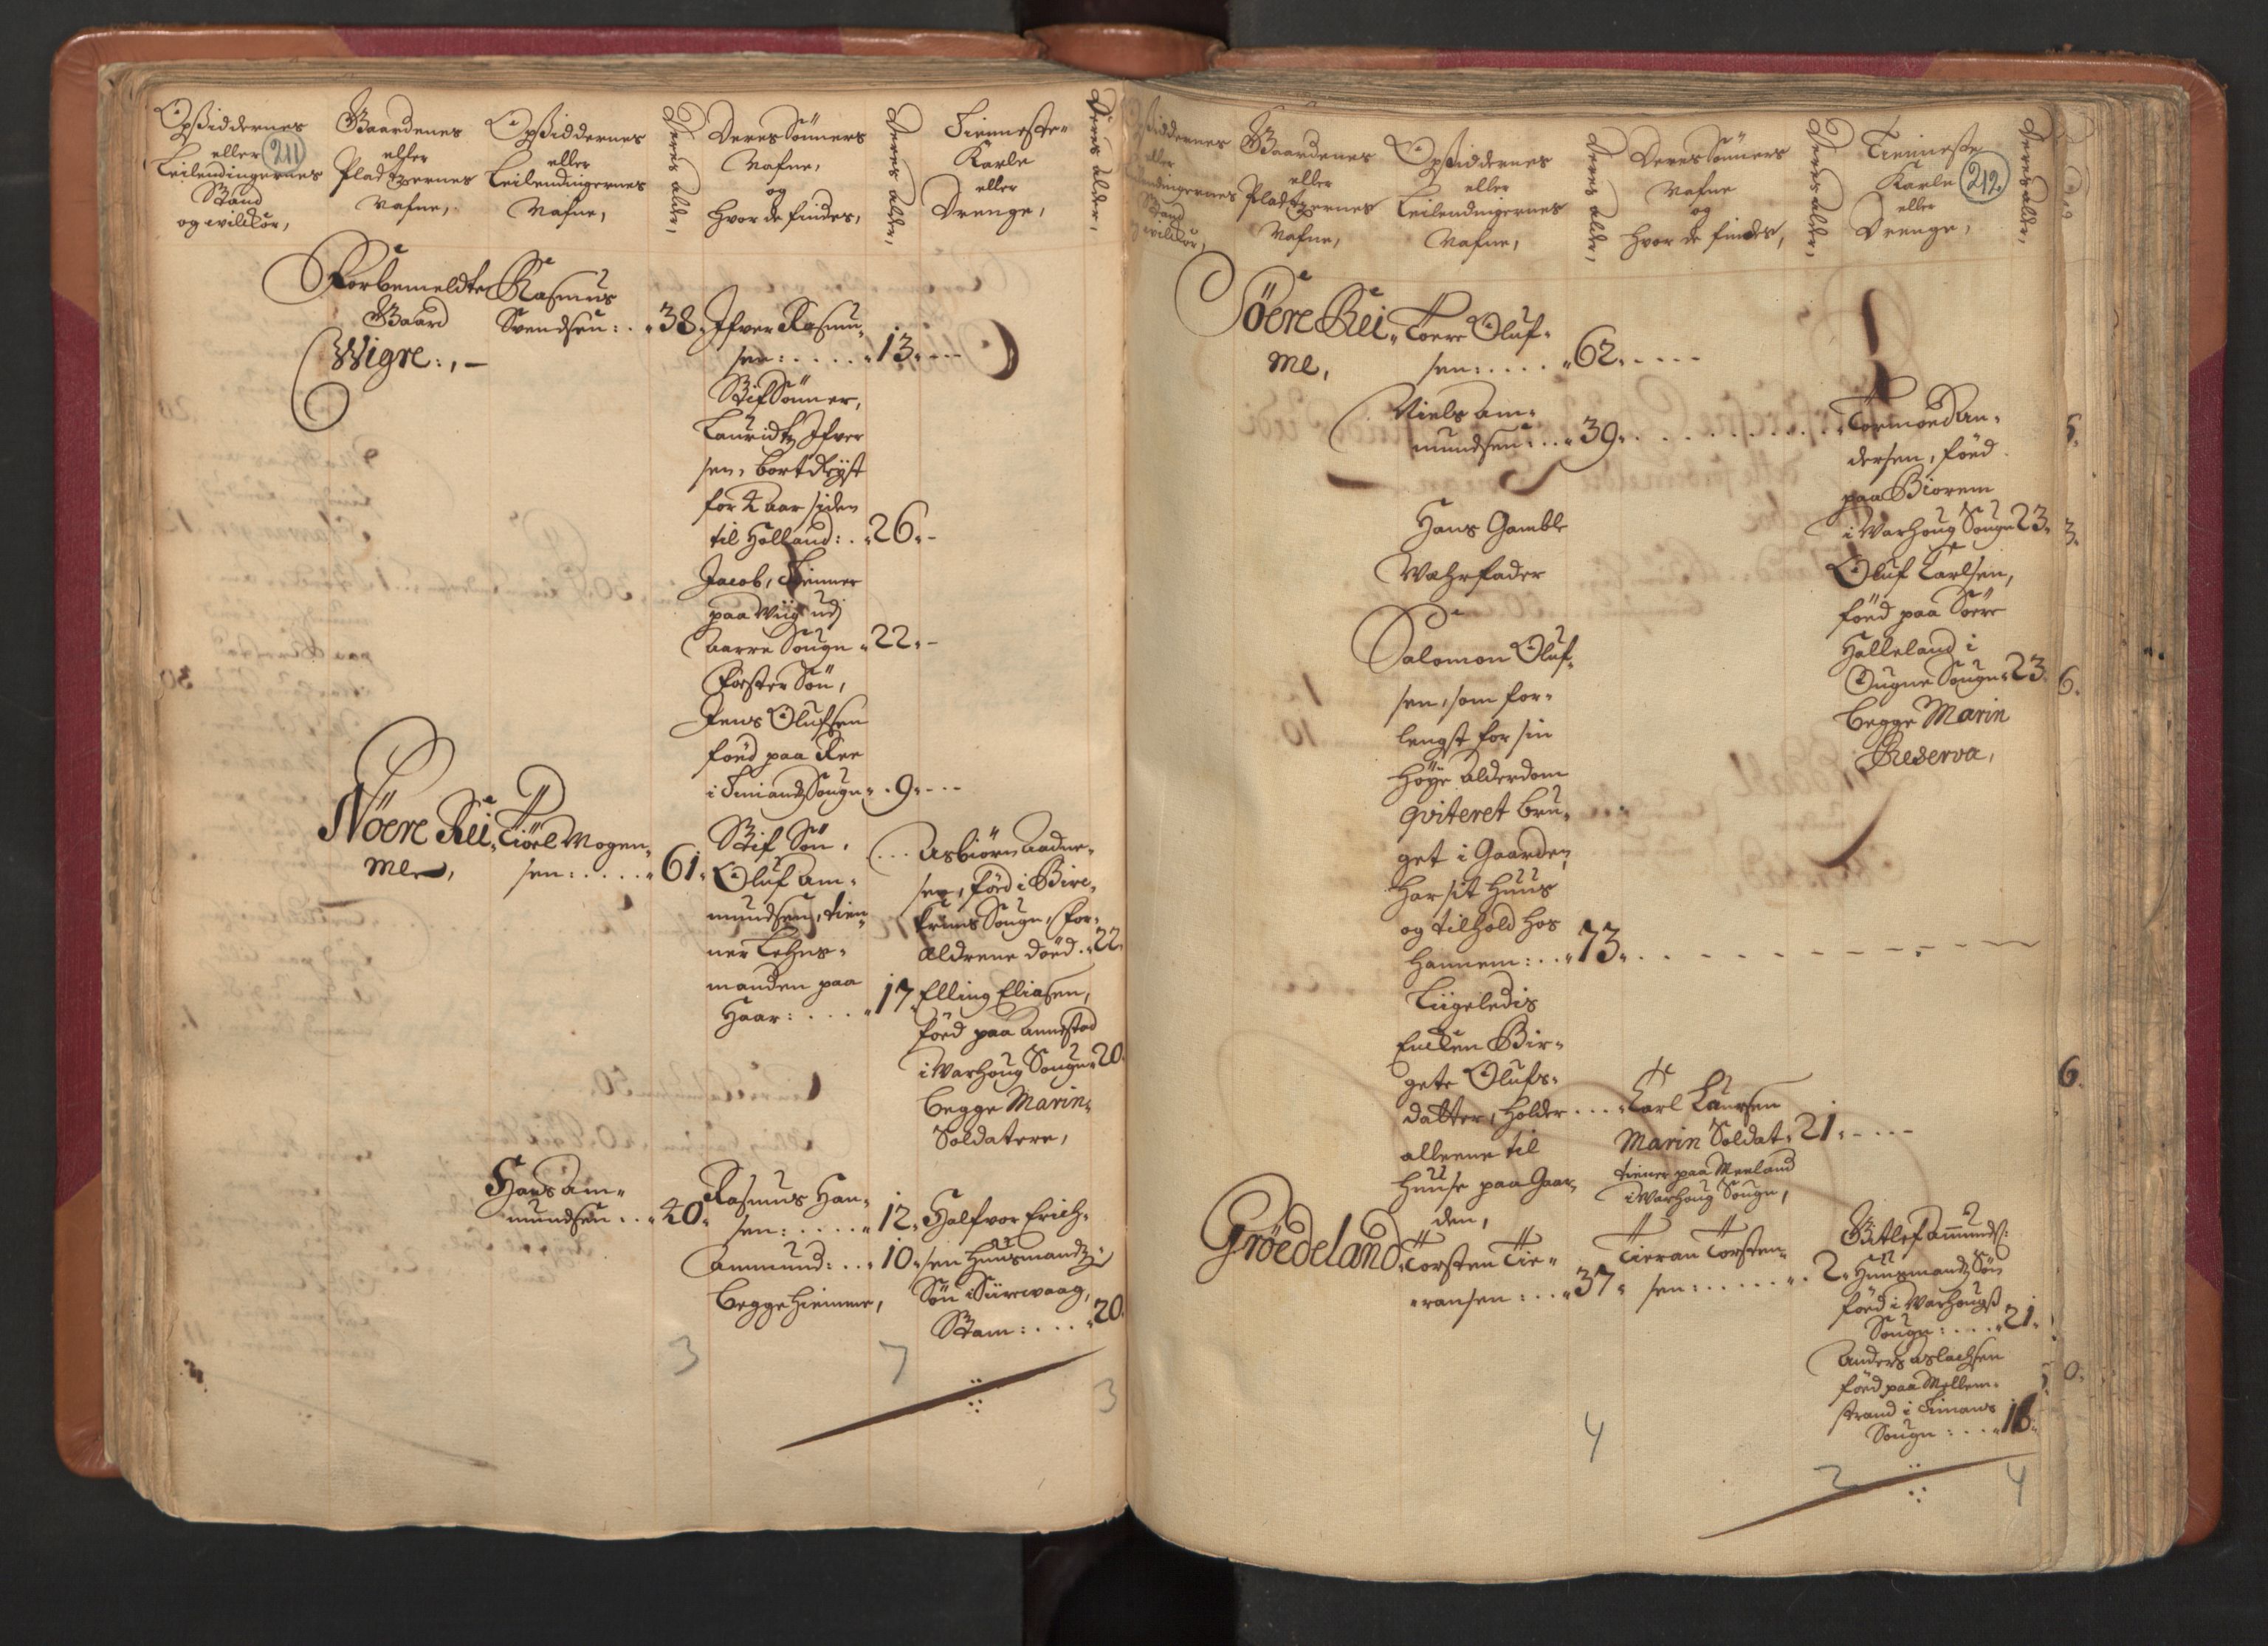 Opsiddernes
eller
Leilendingernes
Stand
og willkor,
211
Gaardenes
eller
Pladtzernes
Nafne,
Opsiddernes
eller
Leilendingernes
Nafne,
Deres alder,
Deres Sönners
Nafne,
og
hvor de findes,
Deres alder,
Tienneste
Karle
eller
Drenge,
Deres alder,
Forbemeldte
Gaard
Wigre:,
Rasmus
Svendsen: . 38.
Ifver Rasmu-
sen: . . . . . 13.
StifSönner,
Lauridtz Ifver
sen, bortReyst
for 4 aar siden
til Holland: . . 26.
Jacob, tienner
paa Wiig udj
Aarre Sougn . 22.
Foster Sön,
Jens Olufsen
föed paa Ree
i Timands Sougn . 9.
Nöere Rei-
me,
Tiöel Mogen-
sen: . . . . . 61.
Stif Sön,
Oluf Am-
mundsen, tien-
ner Lehns-
manden paa
Haar: . . . . 17.
Asbiörn Aadne-
sen, föed i Birc-
krems Sougn, For-
Aldrene döed . 22.
Elling Eliasen,
föed paa Annestad
i Warhoug Sougn 20.
begge Marin
Soldatere,
Hans Am-
mundsen . . 40.
Rasmus Han-
sen: . . . . . 12.
Ammund: . . . 10.
begge hiemme,
Halfvor Erich-
sen Huusmandtz
Sön i Siirewaag,
Stam: . . . . 20.
3
7
3
Opsiddernes
eller
Leilendingernes
Stand
og willkor,
Gaardenes
eller
Pladtzernes
Nafne,
Opsiddernes
eller
Leilendingernes
Nafne,
Deres alder,
Deres Sönners
Nafne
og
hvor de findes,
Deres alder,
Tienneste
Karle
eller
Drenge,
212.
Deres alder,
Söere Rei-
me,
Toere Oluf-
sen: . . . . 62.
Niels Am-
mundsen: . . . 39.
Tormoed An-
dersen, föed
paa Biorem
i Warhoug Sougn 23.
Hans Gamble
Wæhrfader
Salomon Oluf-
sen, som for-
lengst for sin
höye alderdom
qviteret bru-
get i Gaarden,
har sit huus
og tilhold hos
hannem: . . 73.
Oluf Carlsen,
föed paa Söere
Halleland i
Ougne Sougn 23.
begge Marin
Reserva,
Liigeledis
Encken Bir-
gete Olufs-
datter, holder
alleene til
huuse paa Gaar-
den,
Carl Laursen
Marin Soldat 21.
tiener paa Meeland
i Warhoug Sougn,
Gröedeland,
Torsten Tie-
ransen: . . . 37.
Tieran Torsten-
sen: . . . . . . 2.
Gitlef Ammunds:
Huusmandtz Sön
föed i Warhougs
Sougn: . . . . 21.
Anders Aslachsen
föed paa Mellem-
strand i Timans
Sougn: . . . 18.
4
2
4